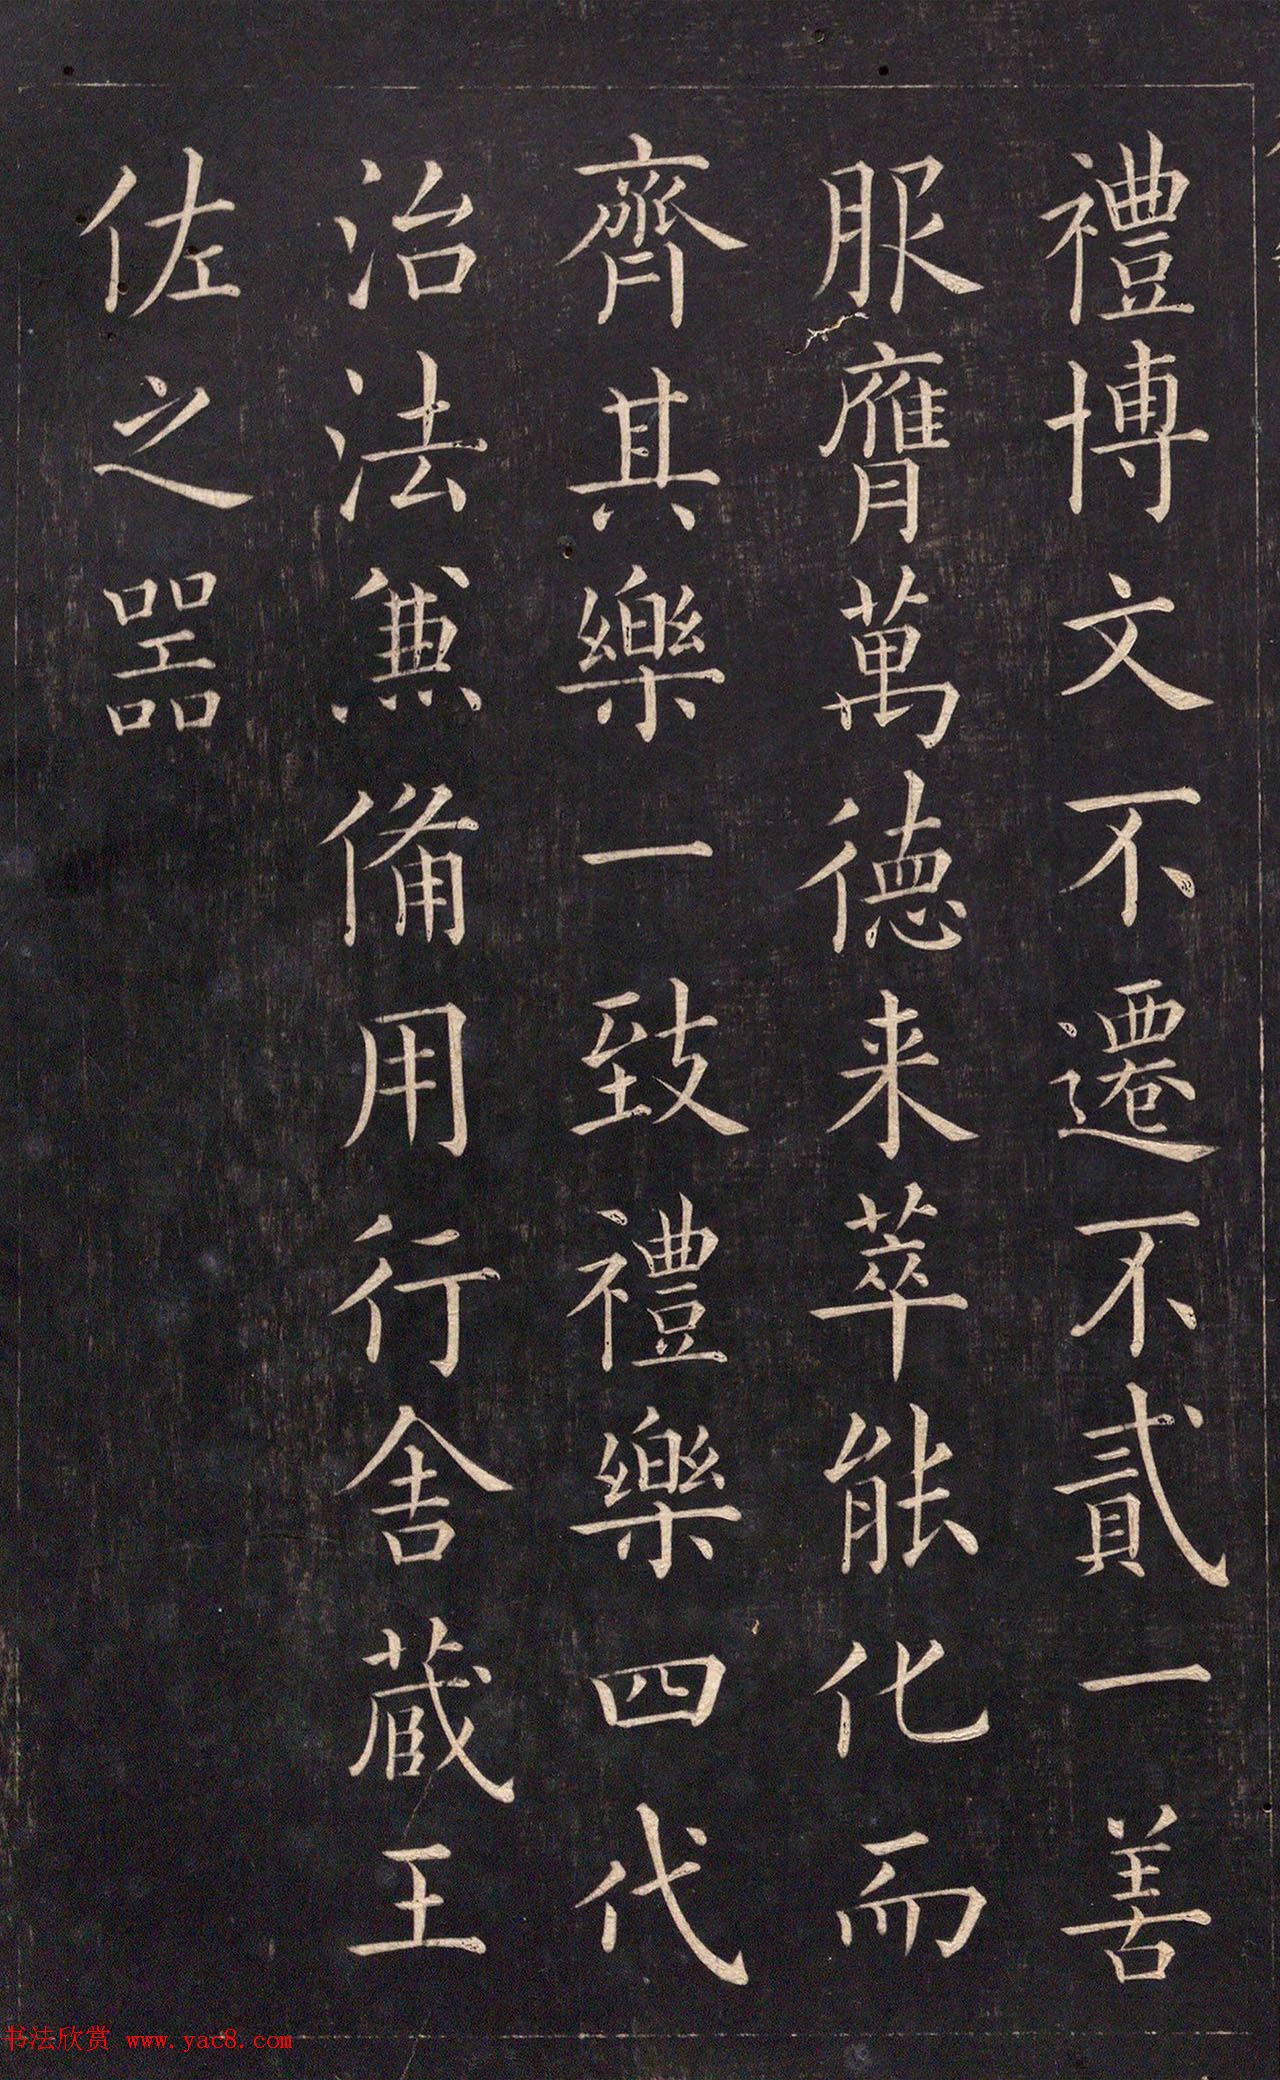 禮博文不遷不貳一善
服膺萬德来萃能化而
齊其樂一致禮樂四代
治法兼備用行舍蔵王
佐之器
书法欣赏 www.yac8.com